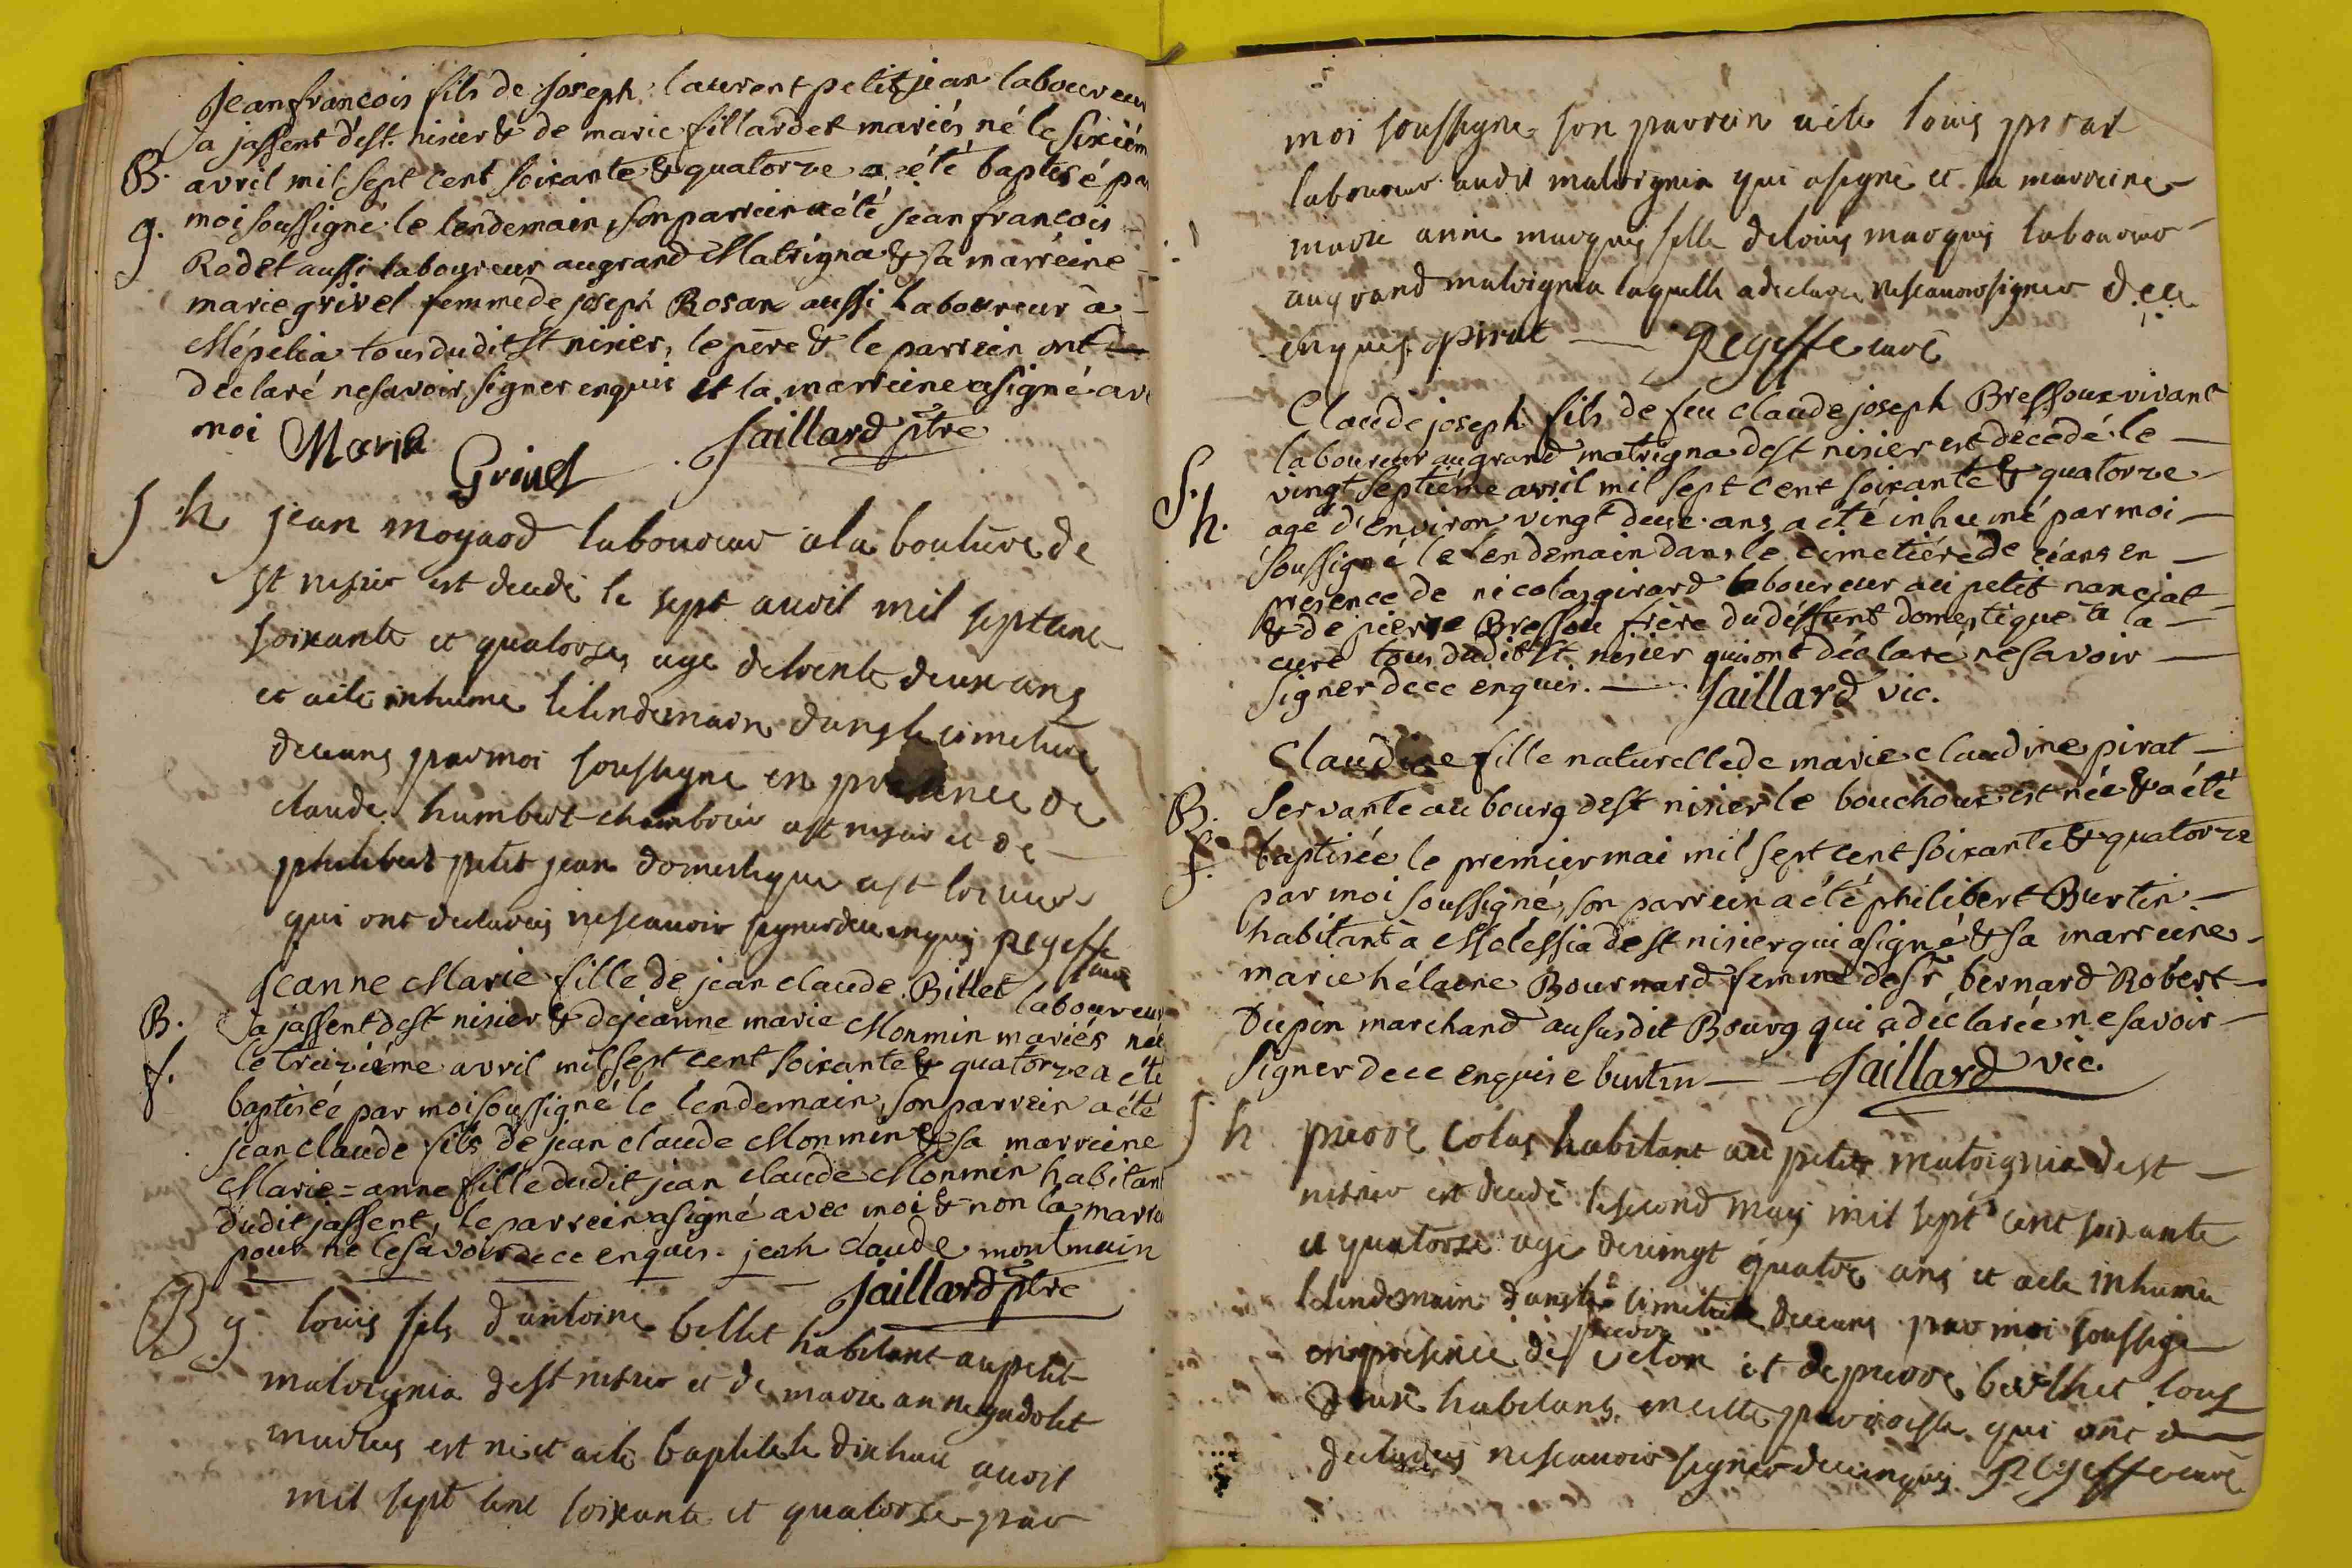 jean francois fils de joseph laurent petitjean laboureur
a jassent de st. nisier & de marie fillardet mariés né le sixiém
B. avril mil sept cent soixante & quatorze a été baptisé pa
g. moi soussigné le lendemain, son parrein a été jean francois
Rodet aussi laboureur au grand Matrigna & sa marreine
marie grivel femme de joseph Rosan aussi Laboureur à
Mépelia tous dudit St nisier, le père & le parrein ont
declaré ne savoir signer enquis et la marreine a signé av
moi Marie Grivel Jaillard ptre
S h jean moyard laboureur a la bouture de
st nisier est decede le sept avril mil sept cent
soixante et quatorse age de trente deux ans
et a ete inhume le lendemain dans le cimetiere
de ceans par moi soussigne en presence de
claude humbert chambrier a st nisier et de
philibert petit jean domestique a st
qui ont declares ne scavoir signer de ce enquis Regeffe curé
jeanne Marie fille de jean claude Billet laboureur
B. a jassent de st nisier & de jeanne marie Monmin mariés née
f. le treiziéme avril mil sept cent soixante & quatorze a été
baptisée par moi soussigné le lendemain, son parrein a été
jean claude fils de jean claude Monmin & sa marreine
Marie=anne fille dudit jean claude Monmin habitant
dudit jassent, le parrein a signé avec moi & non la marre
pour ne le savoir de ce enquis. jeah claude montmain
Jaillard ptre
B g louis fils d'antoine billet habitant au petit
matrignia de st nisier et de marie anne gadolet
maries est ne et a ete baptise le dix huit avril
mil sept cent soixante et quatorse par
moi soussigne son parrein a ete louis pirat
laboureur audit matrignia qui a signe et sa marreine
marie anne marquis fille de louis marquis laboureur
au grand matrignia laquelle a declare ne scavoir signer de ce
enquis. pirat Regeffe curé
Claude joseph fils de feu claude joseph Bressoux vivant
laboureur au grand matrigna de st nisier est décédé le
S. vingt septiéme avril mil sept cent soixante & quatorze
h. agé d'environ vingt deux ans a été inhumé par moi
soussigné le lendemain dans le cimetiére de céans en
presence de nicolas girard laboureur au petit nancial
& de pierre Bressou frère du défunt domestique à la
cure tous dudit St. nisier qui ont déclaré ne savoir
signer de ce enquis. Jaillard vic.
Claudine fille naturelle de marie claudine pirat
B. servante au bourg de st nisier le bouchoux est née & a été
f. baptisée le premier mai mil sept cent soixante & quatorze
par moi soussigné, son parrein a été philibert Burtin
habitant à Molessia de st nisier qui a signé & sa marreine
marie hélaine Bournard femme de sr bernard Robert
Dupin marchand au susdit Bourg qui a déclarée ne savoir
signer de ce enquise burtin Jaillard vic.
S h pierre Colas habitant au petit matrignia de st
nisier est decedé le second may mil sept cent soixante
et quatorse age de vingt quatre ans et a ete inhume
le lendemain dans le cimetiere de ceans par moi soussigé
en presence de pierre velon et de pierre berthet tous
deux habitans en cette paroisse qui ont
declares ne scavoir signer de ce enquis Regeffe curé